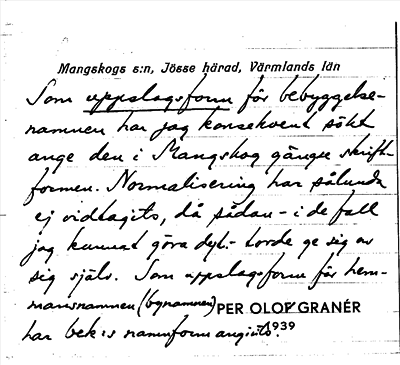 Mangskogs s:n, Jösse härad, Värmlands län
Som uppslagsform för bebyggelse-
namnen har jag konsekvent sökt
ange den i Mangskog gängse skrift-
formen. Normalisering har sålunda
ej vidtagits, då sådan - i de fall
jag kunnat göra dyl. - torde ge sig av
sig själv. Som uppslagsform för hem-
mansnamnen (bynamnen) PER OLOF GRANÉR
har bek:s namnform angivits. 1939